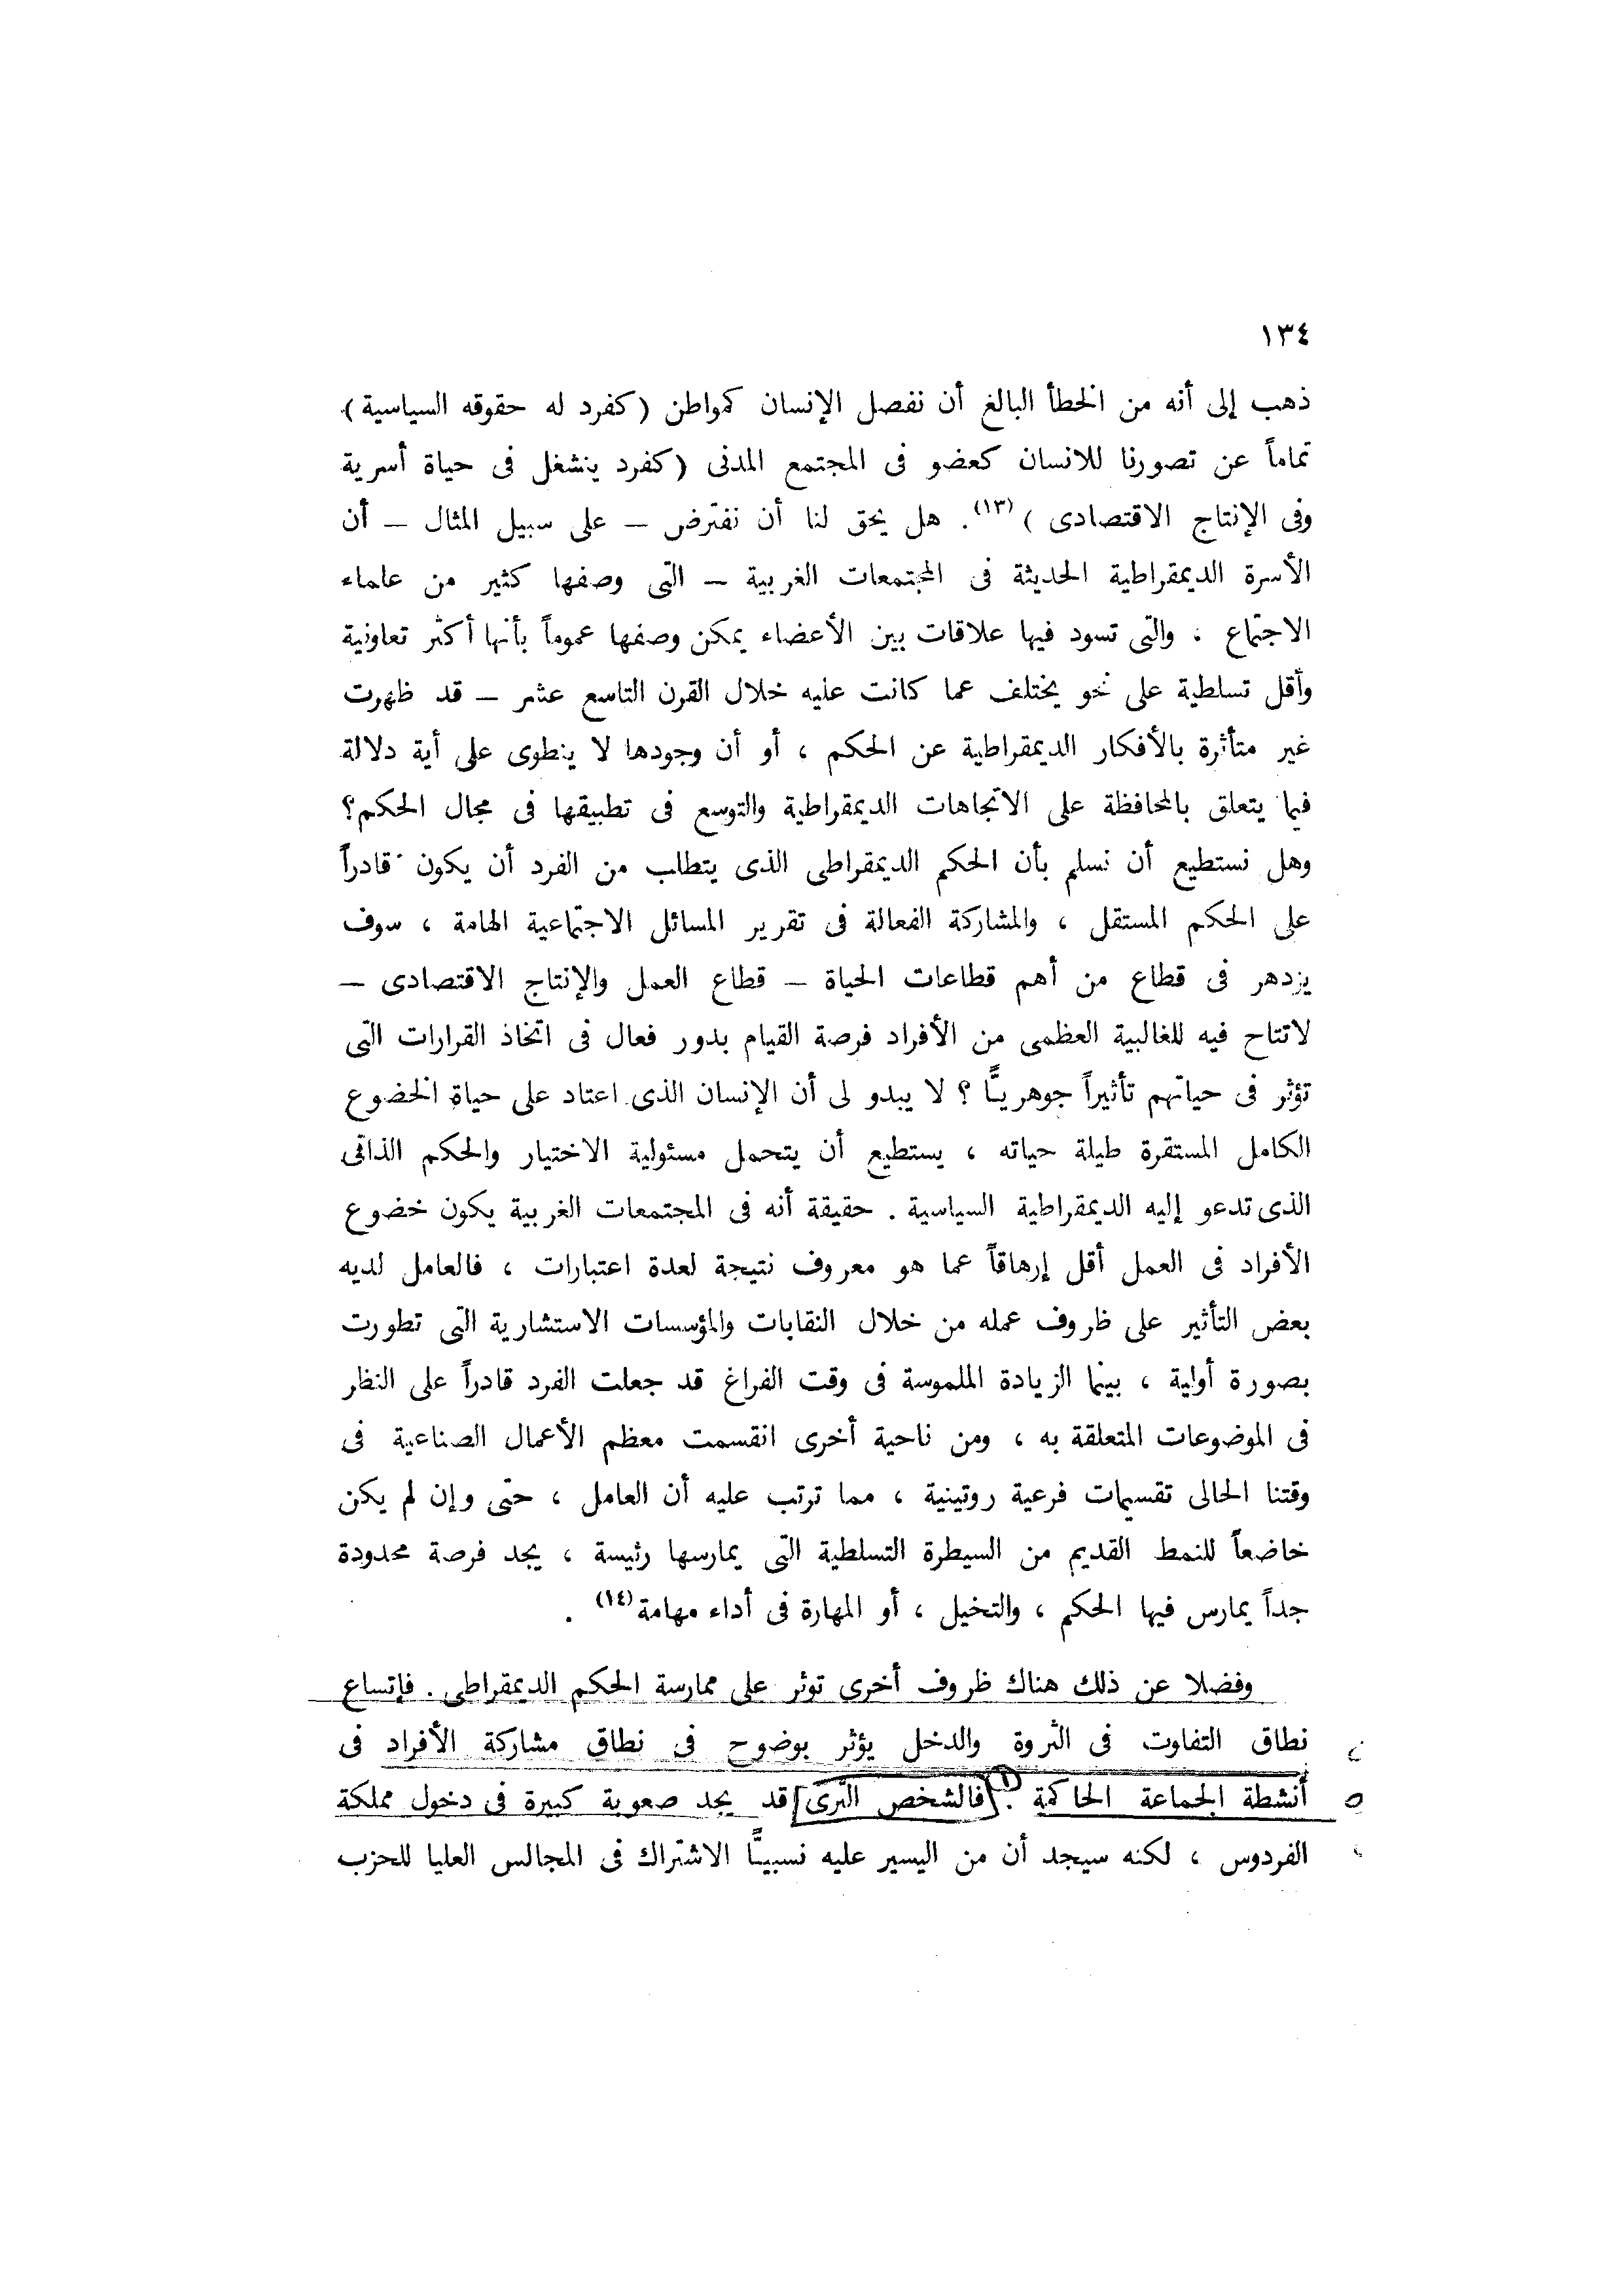 ١٣٤
ذهب إلى أنه من الخطأ البالغ أن نفصل الإنسان كمواطن (كفرد له حقوقه السياسية)
تماماً عن تصورنا للانسان كعضو فى المجتمع المدنى (كفرد ينشغل فى حياة أسرية
وفى الإنتاج الاقتصادى )(١٣). هل يحق لنا أن نفترض – على سبيل المثال – أن
الأسرة الديمقراطية الحديثة فى المجتمعات الغربية – التى وصفها كثير من علماء
الاجتماع ، والتى تسود فيها علاقات بين الأعضاء يمكن وصفها عموماً بأنها أكثر تعاونية
وأقل تسلطية على نحو يختلف عما كانت عليه خلال القرن التاسع عشر – قد ظهرت
غير متأثرة بالأفكار الديمقراطية عن الحكم ، أو أن وجودها لا ينطوى على أية دلالة
فيما يتعلق بالمحافظة على الاتجاهات الديمقراطية والتوسع فى تطبيقها فى مجال الحكم؟
وهل نستطيع أن نسلم بأن الحكم الديمقراطى الذى يتطلب من الفرد أن يكون قادراً
على الحكم المستقل ، والمشاركة الفعالة فى تقرير المسائل الاجتماعية الهامة ، سوف
يزدهر فى قطاع من أهم قطاعات الحياة – قطاع العمل والإنتاج الاقتصادى –
لاتتاح فيه للغالبية العظمى من الأفراد فرصة القيام بدور فعال فى اتخاذ القرارات التى
تؤثر فى حياتهم تأثيراً جوهريًّا ؟ لا يبدو لى أن الإنسان الذى اعتاد على حياة الخضوع
الكامل المستقرة طيلة حياته ، يستطيع أن يتحمل مسئولية الاختيار والحكم الذاتى
الذى تدعو إليه الديمقراطية السياسية . حقيقة أنه فى المجتمعات الغربية يكون خضوع
الأفراد فى العمل أقل إرهاقاً عما هو معروف نتيجة لعدة اعتبارات ، فالعامل لديه
بعض التأثير على ظروف عمله من خلال النقابات والمؤسسات الاستشارية التى تطورت
بصورة أولية ، بينما الزيادة الملموسة فى وقت الفراغ قد جعلت الفرد قادراً على النظر
فى الموضوعات المتعلقة به ، ومن ناحية أخرى انقسمت معظم الأعمال الصناعية فى
وقتنا الحالى تقسيمات فرعية روتينية ، مما ترتب عليه أن العامل ، حتى وإن لم يكن
خاضعاً للنمط القديم من السيطرة التسلطية التى يمارسها رئيسة ، يجد فرصة محدودة
جداً يمارس فيها الحكم ، والتخيل ، أو المهارة فى أداء مهامة(١٤) .
وفضلا عن ذلك هناك ظروف أخرى توثر على ممارسة الحكم الديمقراطى . فإتساع
نطاق التفاوت فى الثروة والدخل يؤثر بوضوح فى نطاق مشاركة الأفراد فى
أنشطة الجماعة الحاكمة . (١) فالشخص الثرى قد يجد صعوبة كبيرة فى دخول مملكة
الفردوس ، لكنه سيجد أن من اليسير عليه نسبيًّا الاشتراك فى المجالس العليا للحزب